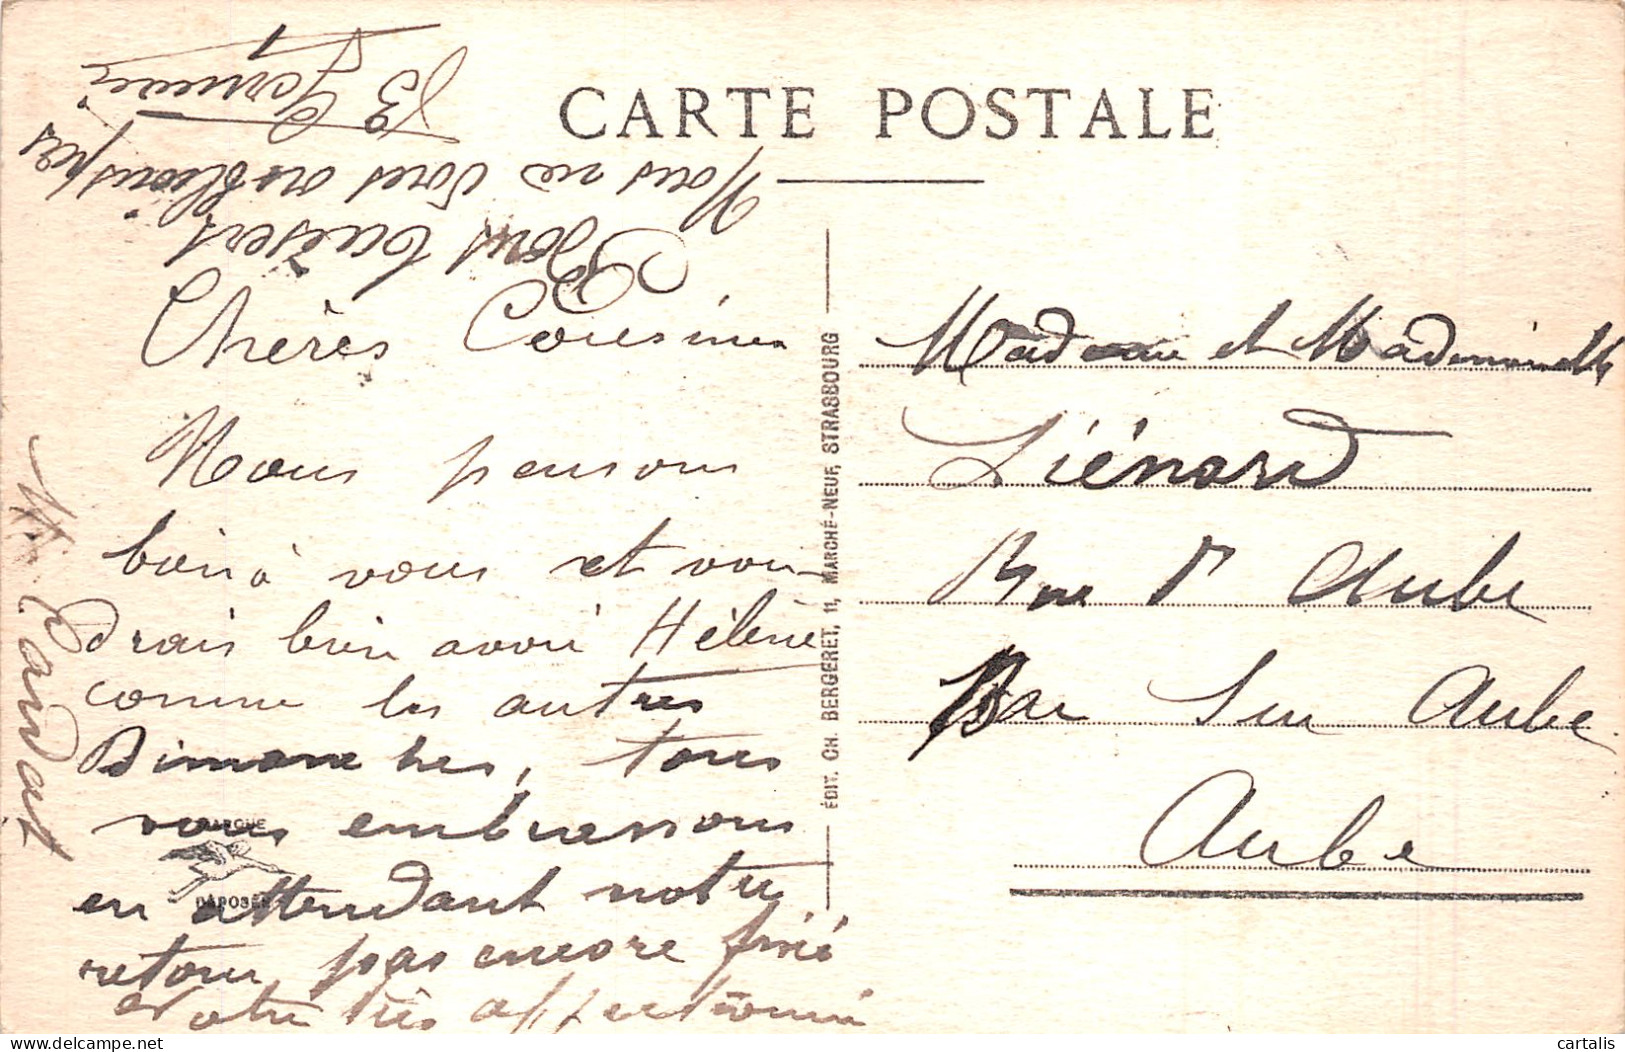 CARTE POSTALE
Chères Cousines
Nous pensons
bien à vous et vou-
drais bien avoir Hélène
comme les autres
Dimanches, tous
vous embrassons
en attendant notre
retour pas encore fixé
Votre très affectionné
Nous ne vous oublions pas
Bons baisers
MARQUE
DÉPOSÉE
ÉDIT. CH. BERGERET, 11, MARCHÉ-NEUF, STRASBOURG
Madame et Mademoiselle
Liénard
Rue d'Aube
Bar Sur Aube
Aube
cartalis
delcampe.net